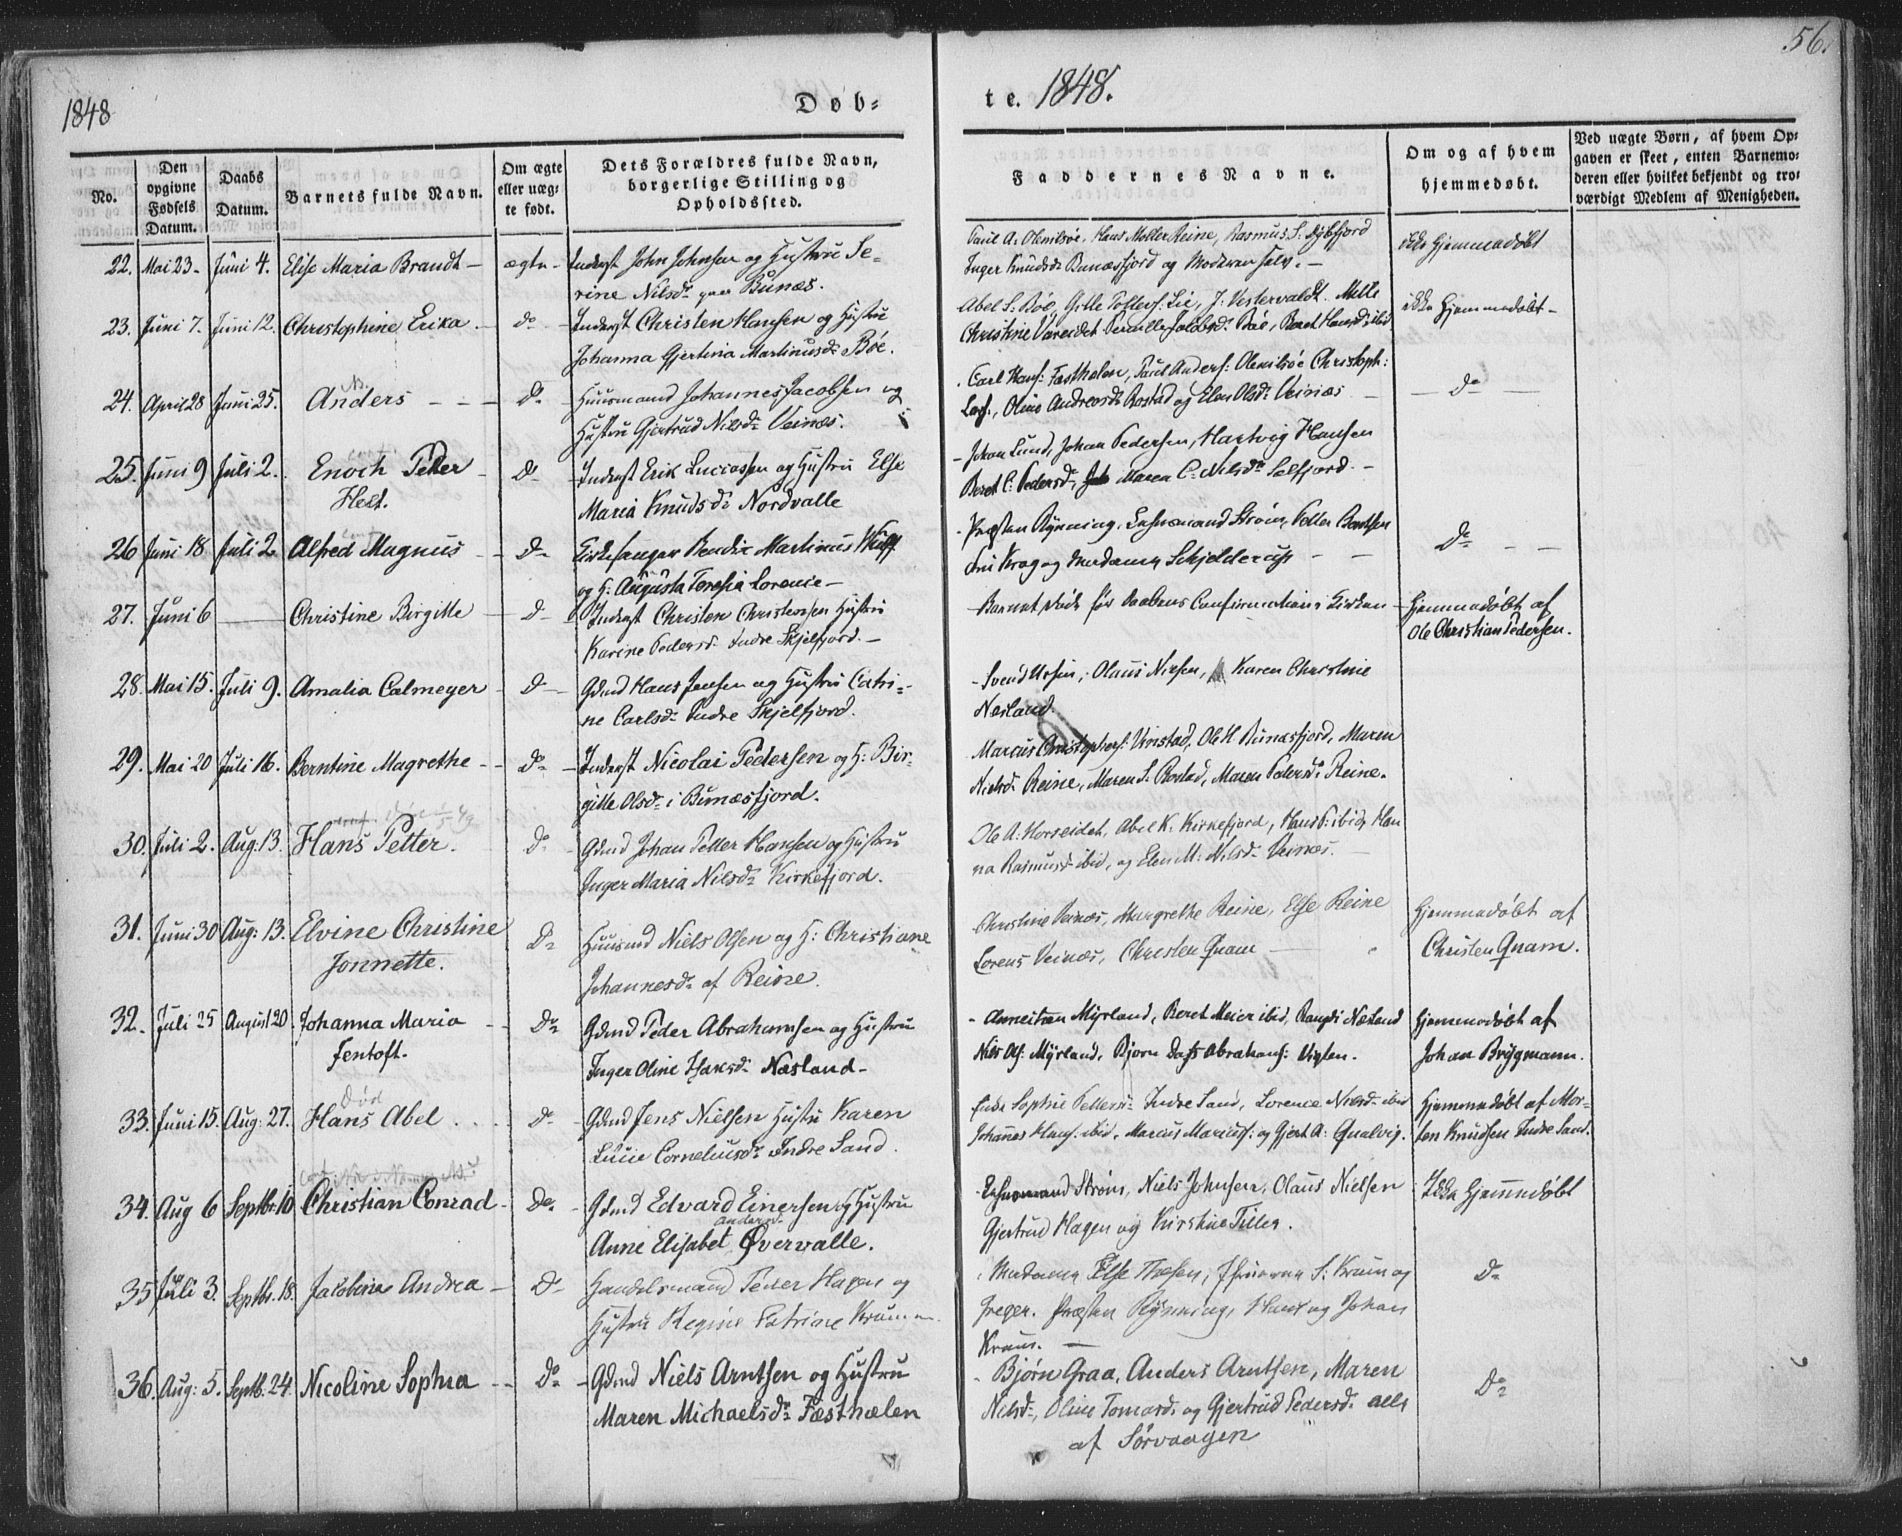 1848
Døb=
te. 1848.
56.
No.
Den opgivne Fødsels Datum.
Daabs Datum.
Barnets fulde Navn.
Om ægte eller uægte født.
Dets Forældres fulde Navn, borgerlige Stilling og Opholdssted.
Faddernes Navne.
Om og af hvem hjemmedøbt.
Ved uægte Børn, af hvem Opgaven er skeet, enten Barnemoderen eller hvilket bekjendt og troværdigt Medlem af Menigheden.
22. Mai 23. Juni 4. Elise Maria Brandt ægte Inderst John Johnsen og Hustru Se-
rine Nilsd. paa Bunæs.
Paul A. Olenilsøe, Hans Møller Reine, Rasmus S.
Inger Knudsd. Bunæsfjord og Moderen selv.
ikke Hjemmedøbt
23. Juni 7. Juni 12. Christophine Erika. Do Inderst Christen Hansen og Hustru
Johanna Gjertina Martinusd. Bøe.
Abel S. Bøe, Lie, J. Vestervaldt. Mette
Christine Vareidet Bøe, Beret Hansd. ibid
ikke Hjemmedøbt
24. April 28 Juni 25. Anders Do Huusmand Johannes Jacobsen og
Hustru Gjertrud Nilsd. Veinæs.
Carl Hans. Fæsthælen, Paul Anders. Olenilsøe Christoph:
Oline Andreasd. Rostad og Elen Olsd. Veinæs
Do
25. Juni 9 Juli 2. Enoch Petter
Helt.
Do Inderst Erik Luciassen og Hustru Else
Maria Knudsd. Nordvalle
Johan Lund, Johan Pedersen, Hartvig Hansen
Beret C. Pedersd., Maren C. Nilsd. Selfjord.
26 Juni 18 Juli 2 Alfred Magnus Do Kirkesanger Bendix Martinus Wulff
og H. Augusta Teresia Lorenie
Præsten Rynning, Lehnsmand Strøm, Petter Bentsen
Krog og Madame Schjelderup
Do
27. Juni 6 Christine Birgitte Do Inderst Christen Christensen Hustru
Karine Pedersd. Indre Skjelfjord.
Barnet døde før Daabens Confirmation i Kirken
Hjemmedøbt af
Ole Christian Pedersen.
28. Mai 15. Juli 9. Amalia Calmeyer Do Gdmd Hans Jensen og Hustru Catri-
ne Carlsd. Indre Skjelfjord.
Svend Ursin, Olaus Nielsen, Karen Christine
Næsland.
29. Mai 20 Juli 16. Berntine Magrethe Do Inderst Nicolai Pedersen og H. Bir-
gitte Olsd. i Bunæsfjord.
Marcus Christophers. Unstad, Ole H. Bunæsfjord, Maren
Nielsd. Reine, Maren S. Rostad, Maren Pedersd. Reine.
30. Juli 2. Aug: 13. Hans Petter. Do Gdmd Johan Petter Hansen og Hustru
Inger Maria Nilsd. Kirkefjord.
Ole A. Horseidet, Abel K. Kirkefjord, Hans P. ibid, Han
na Rasmusd. ibid, og Elen M. Nilsd. Veinæs.
31. Juni 30 Aug: 13. Elvine Christine
Jonnette.
Do Huusmd Niels Olsen og H: Christiane
Johannesd. af Reine.
Christine Veinæs, Margrethe Reine, Else Reine
Lorens Veinæs, Christen Qvam
Hjemmedøbt af
Christen Qvam.
32. Juli 25 August 20. Johanna Maria
Jentoft.
Do Gdmd Peder Abrahamsen og Hustru
Inger Oline Hansd. Næsland
Myrland, Beret Meier ibid, Næsland
Nils Ols. Myrland, Bjørn Abrahams: Vigten.
Hjemmedøbt af
Johan Brygmann.
33. Juni 15. Aug: 27. Død
Hans Abel Do Gdmd Jens Nielsen Hustru Karen
Lucie Corneliusd. Indre Sand.
Sophie Pettersd. Indre Sand, Lorence Nilsd. ibid
Johannes Hans. ibid, Marcus Marius. og Gjert A: Qvalvig.
Hjemmedøbt af Mor-
ten Knudsen Indre Sand.
34. Aug 6 Septbr. 10 Christian Conrad Do Gdmd Edvard Einersen og Hustru
Anne Elisabet Andersd. Øvervalle.
Lehnsmand Strøm, Niels Johnsen, Olaus Nielsen
Gjertrud Hagen og Kirstine Tiller.
Ikke Hjemmedøbt
35 Juli 3. Septbr. 18. Jacobine Andrea Do Handelsmand Peder Hagen og
Hustru Regine Catrine Krum
Madame Else Thesen, Jfruerne S. Krum og
Jeger. Præsten Rynning, og Johan
Krum.
Do
36. Aug: 5. Septb. 24. Nicoline Sophia Do Gdmd Niels Arntsen og Hustru
Maren Michaelsd. Fæsthælen
Bjørn Graa, Anders Arntsen, Maren
Nilsd., Oline Tomasd. og Gjertrud Pedersd. alle
af Sørvaagen
Do